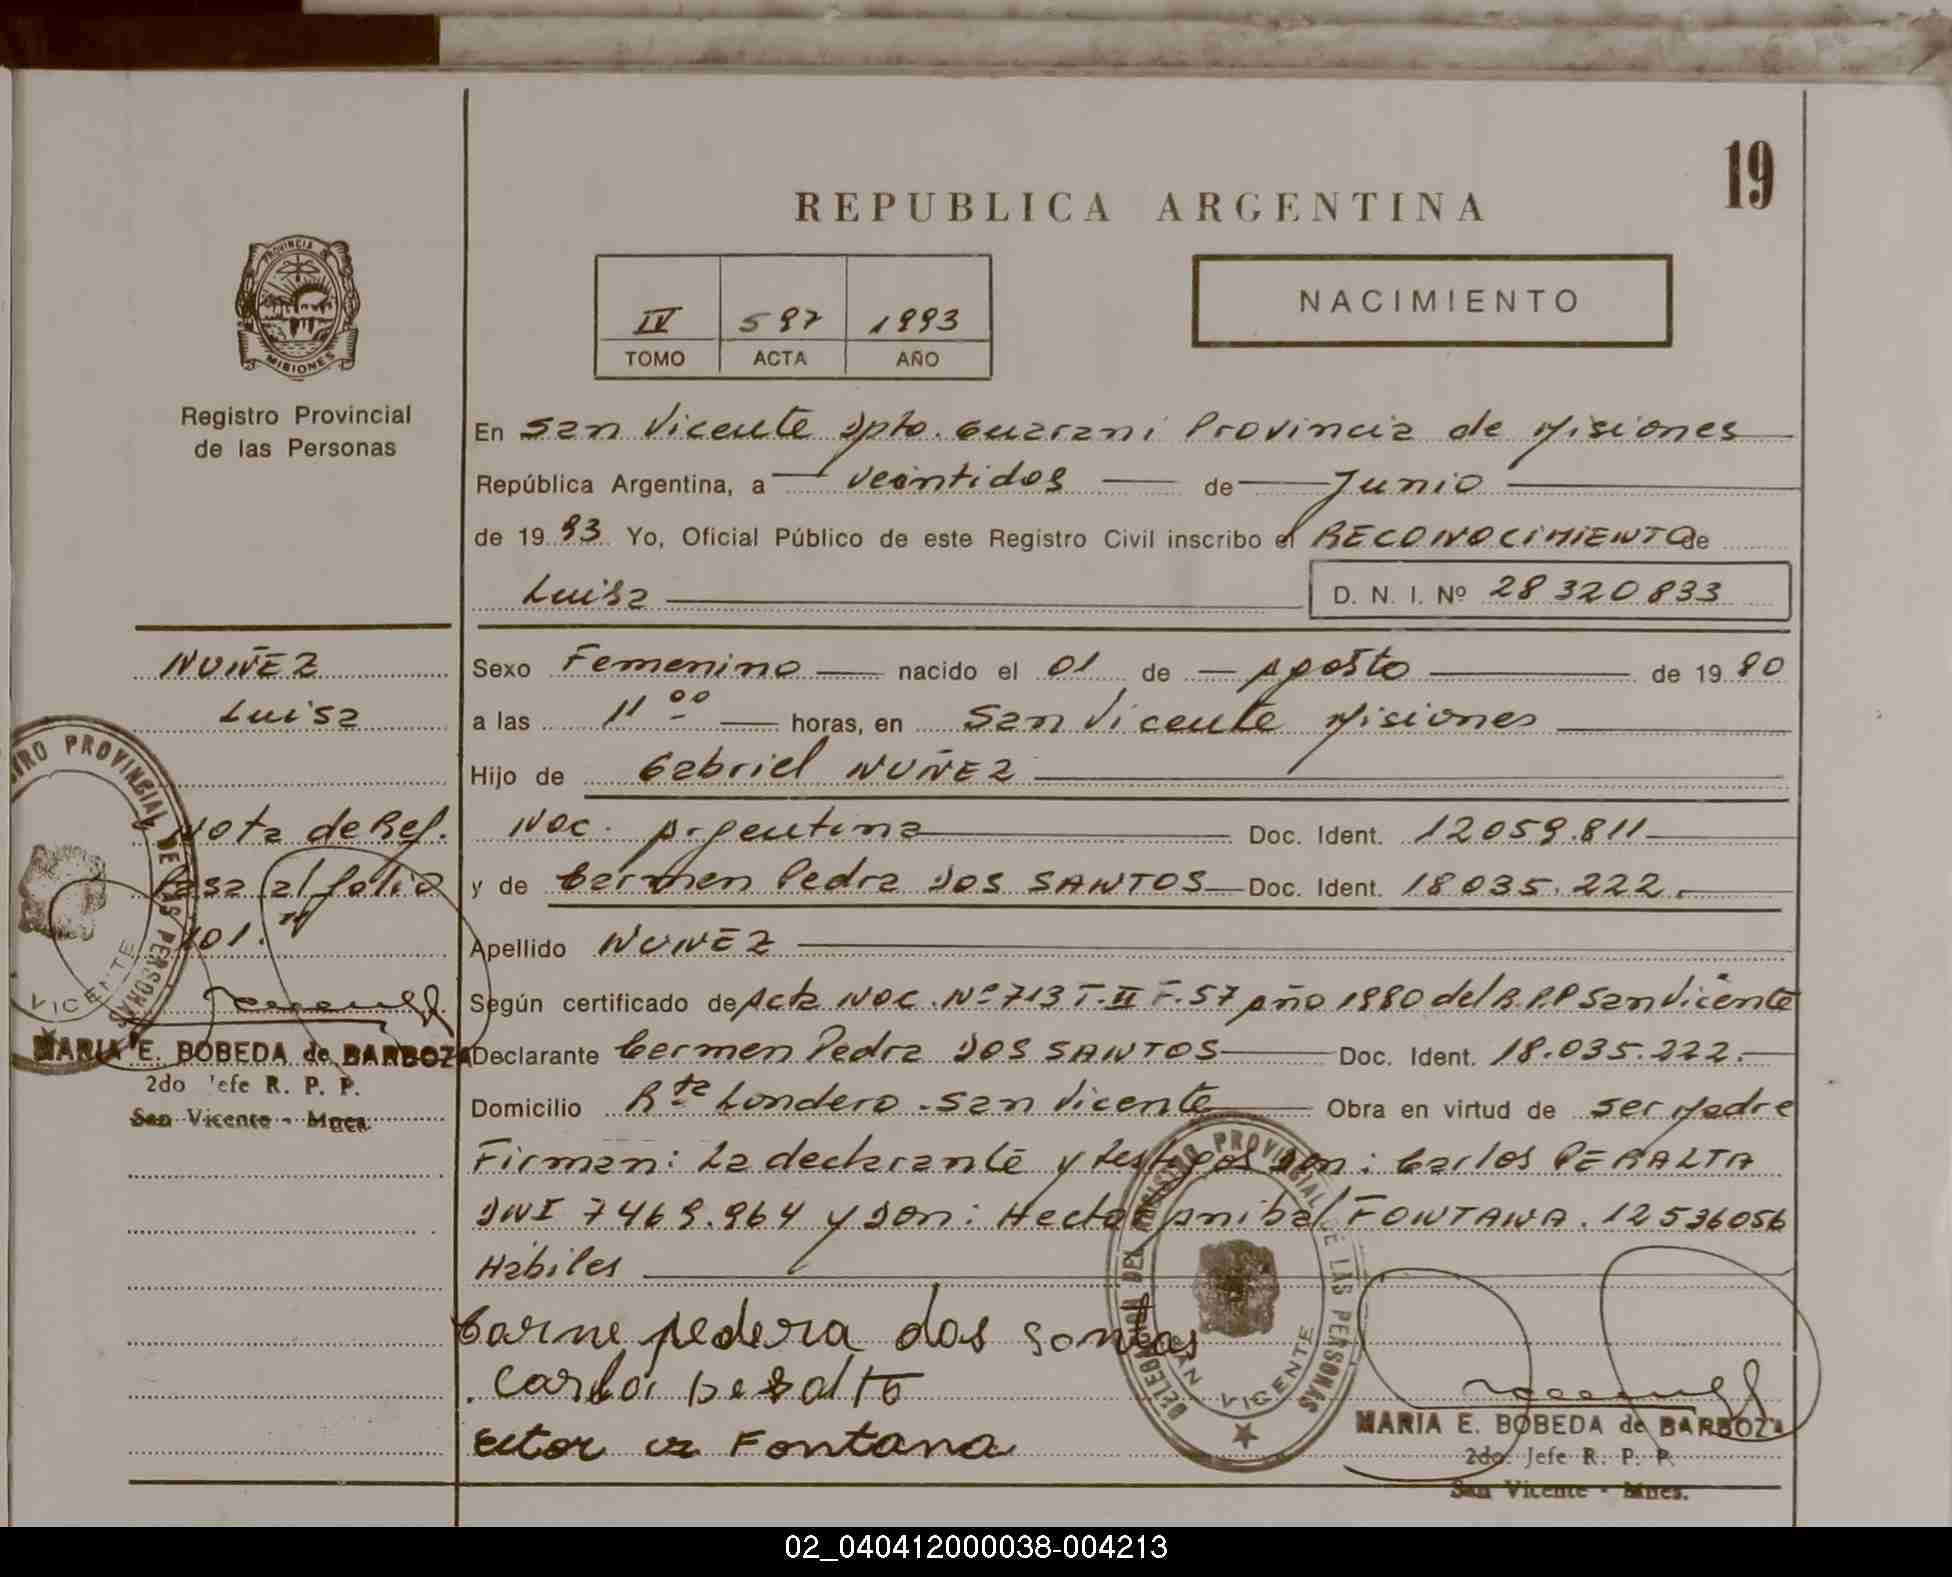 19
REPUBLICA ARGENTINA
PROVINCIA DE
MISIONES
Registro Provincial
de las Personas
IV 597 1993
TOMO ACTA AÑO
NACIMIENTO
En San Vicente Dpto. Guarani Provincia de Misiones
República Argentina, a veintidos de Junio
de 1993 Yo, Oficial Público de este Registro Civil inscribo el RECONOCIMIENTO de
Luisa D. N. I. Nº 28 320 833
NUÑEZ
Luisa
Nota de Ref.
Pasa al folio
101.
MARIA E. BOBEDA de BARBOZA
2do Jefe R. P. P.
San Vicente - Mnes.
Sexo Femenino nacido el 01 de Agosto de 1980
a las 11 00 horas, en San Vicente Misiones
Hijo de Gabriel NUÑEZ
Nac. Argentina Doc. Ident. 12059.811
y de Carmen Pedra DOS SANTOS Doc. Ident. 18035.222.
Apellido NUÑEZ
Según certificado de Acta Nac. Nº 713 T.II F.57 año 1980 del R.P.P San Vicente
Declarante Carmen Pedra DOS SANTOS Doc. Ident. 18.035.222.
Domicilio Rta Londero - San Vicente Obra en virtud de ser Madre
Firman: La declarante y testigos Don: Carlos PERALTA
DNI 7469.964 y Don: Hector Anibal FONTANA. 12536056
Hábiles
Carme pedera dos
Carlos
Ector Fontana
DELEGACION DEL REGISTRO PROVINCIAL DE LAS PERSONAS
SAN VICENTE
MARIA E. BOBEDA de BARBOZA
2do. Jefe R. P. P.
San Vicente - Mnes.
02_040412000038-004213